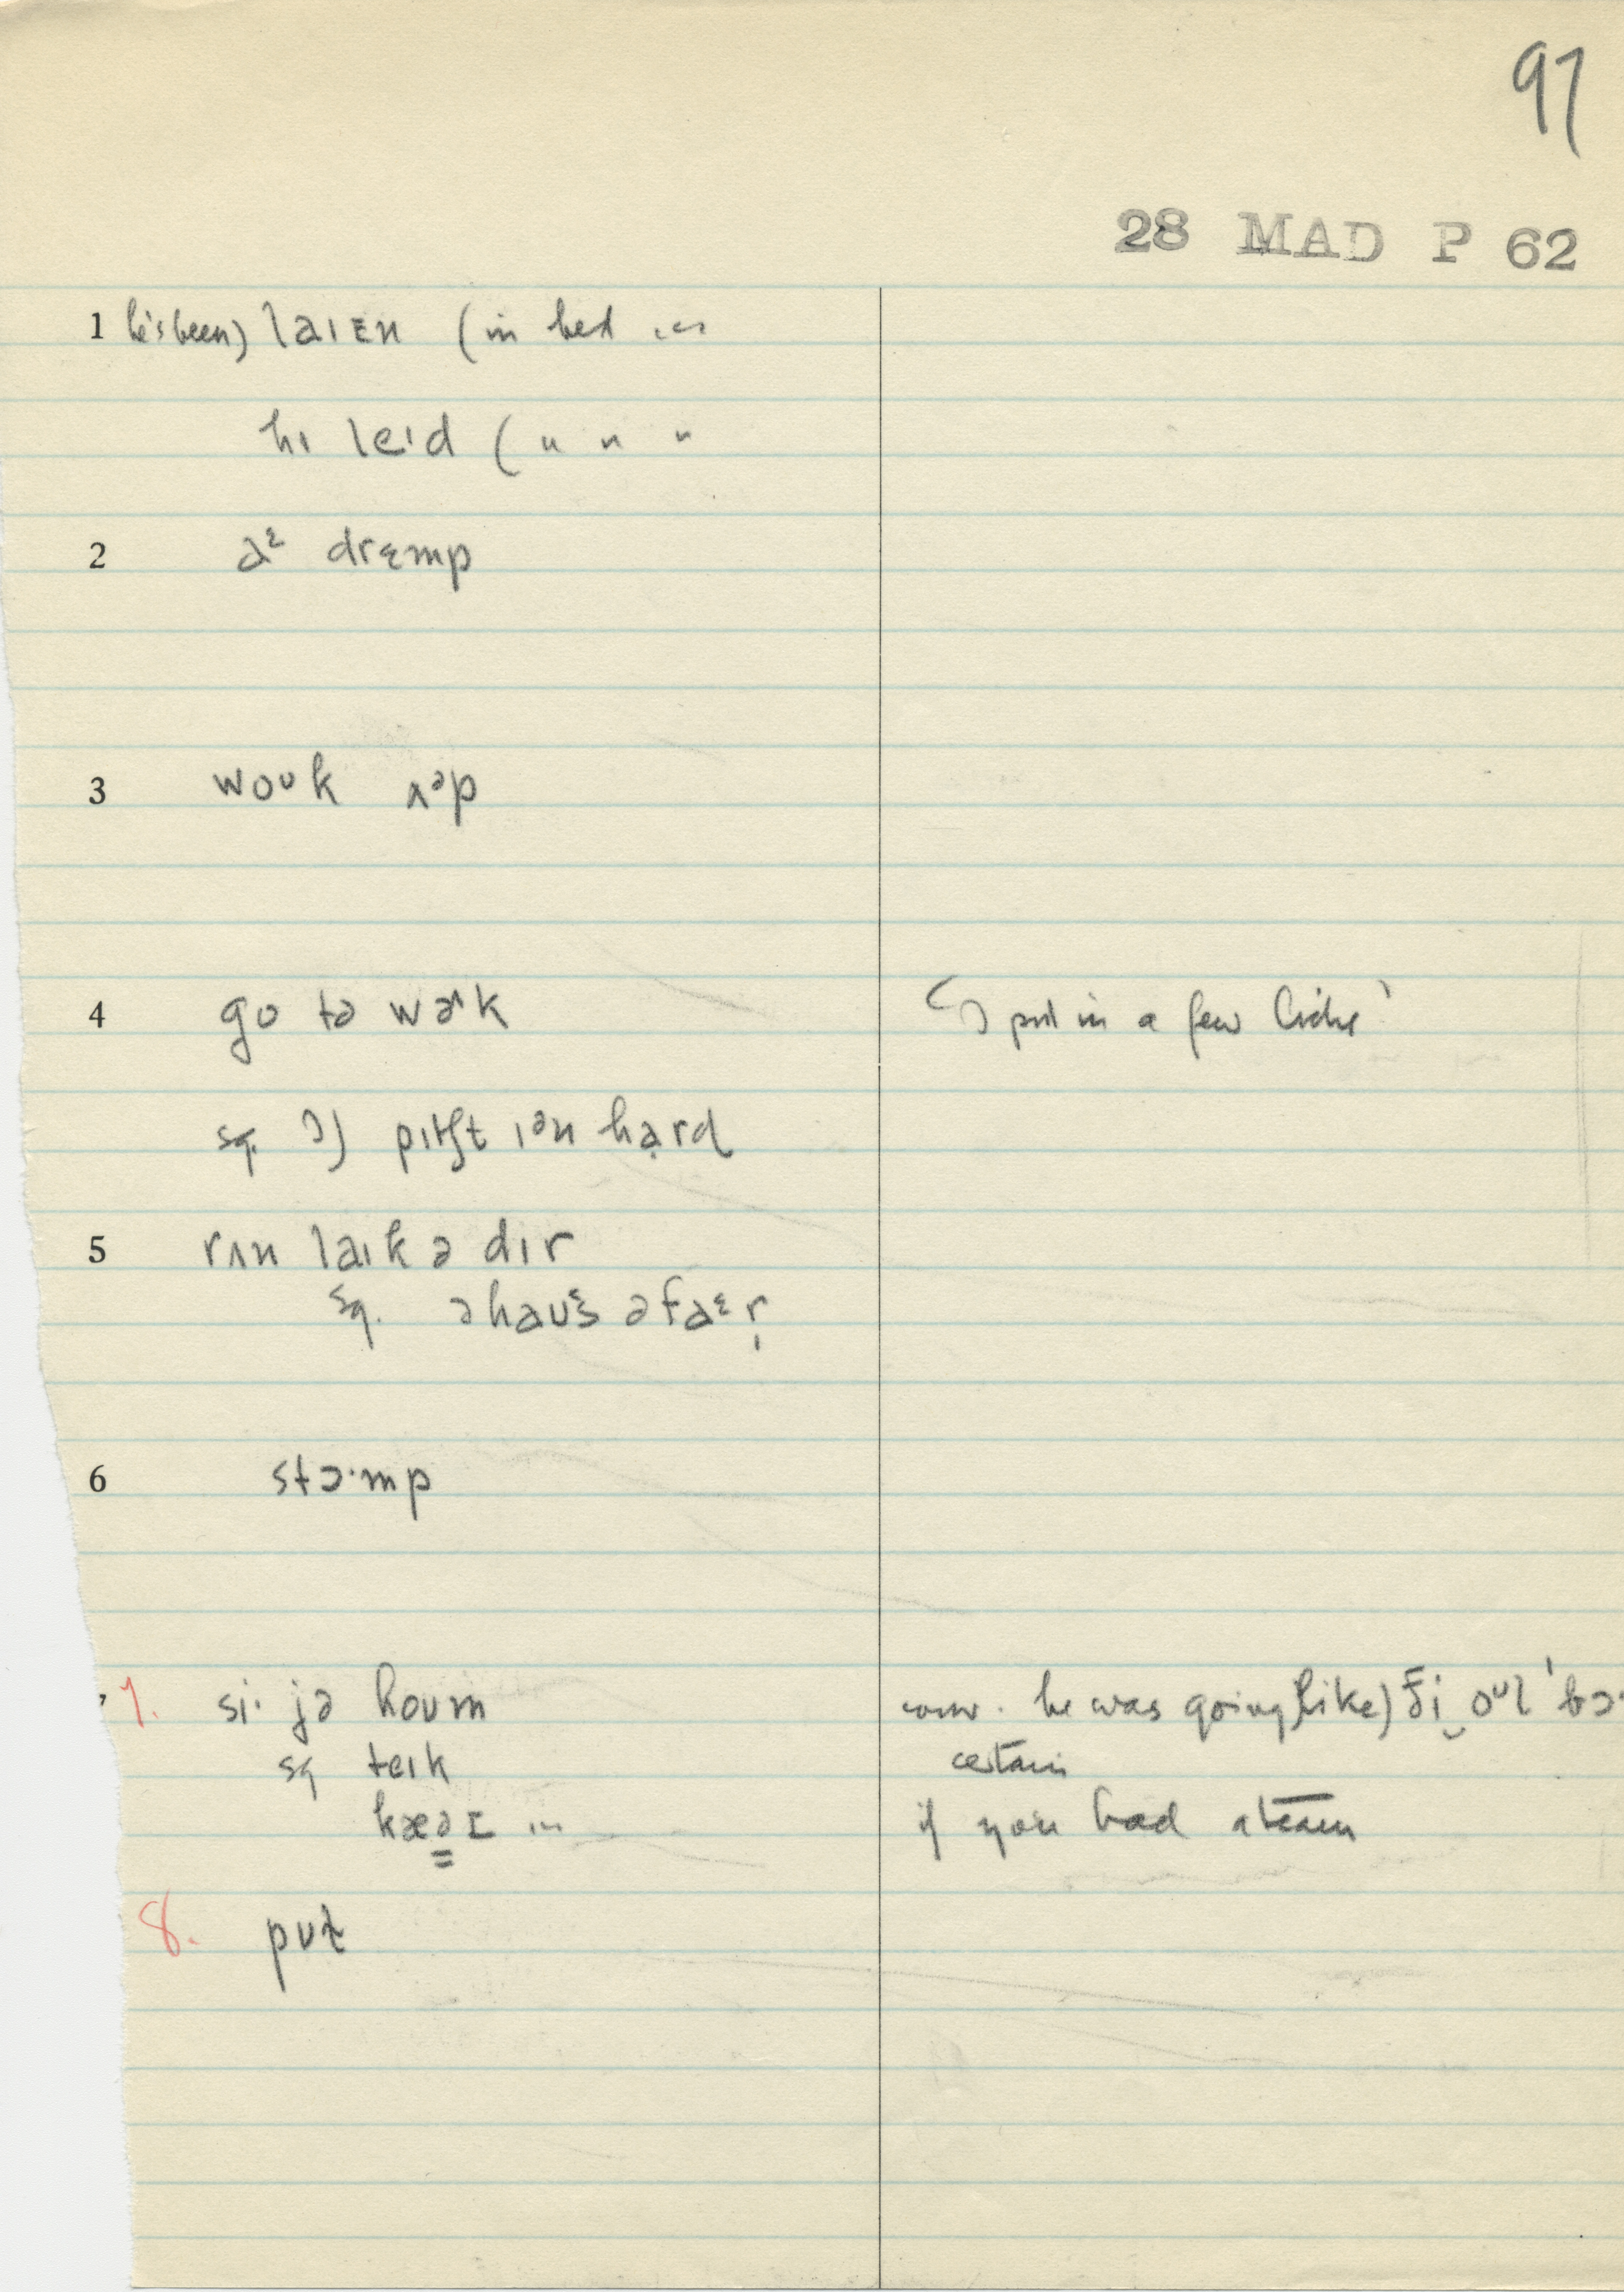 97
28 MAD P 62
1 he's been) laɪɛn (in bed ...
hɪ leɪd ( " " "
2 aᵋ drɛmp
3 woᴜk ʌᵊp
4 go tə wɚk put in a few licks'
sq. pɪtʃt ɪᵊn hạrd
5 rʌn laɪk ə dɪr
sq. ə haᴜs əfaᵋr̩
6 stɔ·mp
7. si· jə hoᴜm conv. he was going like) ði‿oᴜl 'bɔ·
sq teɪk certain
kæəɪ ... if you had a team
8. pᴜt